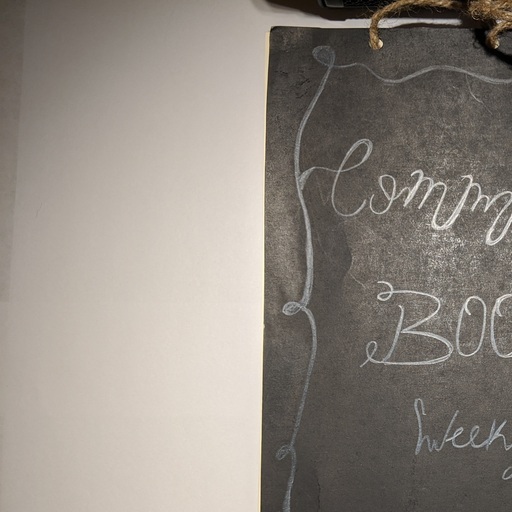 Comm
BOO
Week